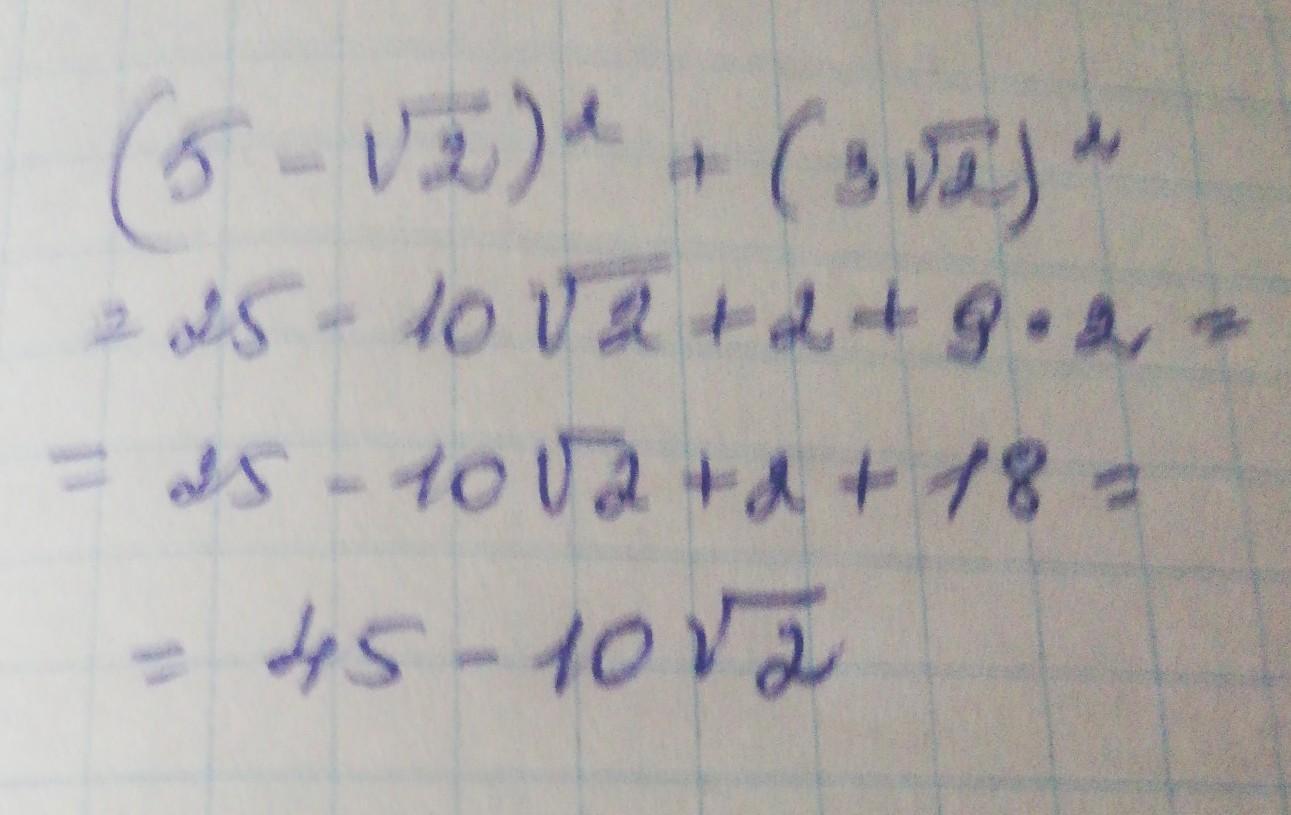 (5 - √2)² + (3√2)²
= 25 - 10√2 + 2 + 9 · 2 =
= 25 - 10√2 + 2 + 18 =
= 45 - 10√2